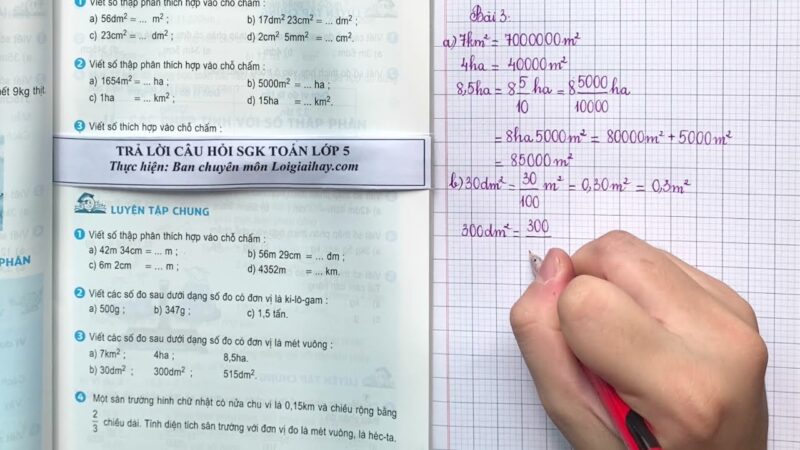 1 Viết số thập phân thích hợp vào chỗ chấm :
a) 56dm² = ... m² ; b) 17dm² 23cm² = ... dm² ;
c) 23cm² = ... dm² ; d) 2cm² 5mm² = ... cm².
2 Viết số thập phân thích hợp vào chỗ chấm :
a) 1654m² = ... ha ; b) 5000m² = ... ha ;
c) 1ha = ... km² ; d) 15ha = ... km².
3 Viết số thích hợp vào chỗ chấm :
ết 9kg thịt
TRẢ LỜI CÂU HỎI SGK TOÁN LỚP 5
Thực hiện: Ban chuyên môn Loigiaihay.com
LUYỆN TẬP CHUNG
PHÂN
1 Viết số thập phân thích hợp vào chỗ chấm :
a) 42m 34cm = ... m ; b) 56m 29cm = ... dm ;
c) 6m 2cm = ... m ; d) 4352m = ... km.
2 Viết các số đo sau dưới dạng số đo có đơn vị là ki-lô-gam :
a) 500g ; b) 347g ; c) 1,5 tấn.
3 Viết các số đo sau dưới dạng số đo có đơn vị là mét vuông :
a) 7km² ; 4ha ; 8,5ha.
b) 30dm² ; 300dm² ; 515dm².
4 Một sân trường hình chữ nhật có nửa chu vi là 0,15km và chiều rộng bằng
2/3 chiều dài. Tính diện tích sân trường với đơn vị đo là mét vuông, là héc-ta.
Bài 3.
a) 7km² = 7000000m²
4ha = 40000m²
8,5ha = 8 5/10 ha = 8 5000/10000 ha
= 8ha 5000m² = 80000m² + 5000m²
= 85000m²
b) 30dm² = 30/100 m² = 0,30m² = 0,3m²
300dm² = 300